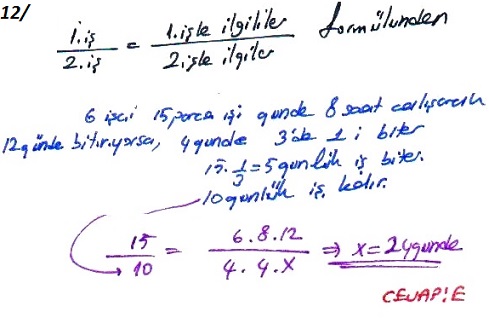 12/
1.iş / 2.iş = 1.işle ilgililer / 2.işle ilgiler formülünden
6 işçi 15 parça işi günde 8 saat çalışarak
12 günde bitiriyorsa, 4 günde 3'de 1 i biter
15. 1/3 = 5 günlük iş biter.
10 günlük iş kalır.
15 / 10 = 6.8.12 / 4.4.X ⇒ x = 24 günde
CEVAP:E